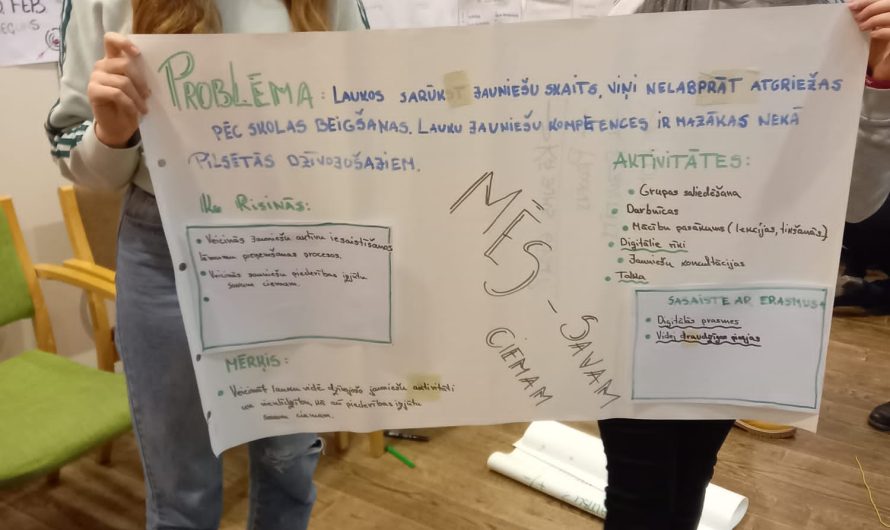 PROBLĒMA: LAUKOS SARŪK JAUNIEŠU SKAITS, VIŅI NELABPRĀT ATGRIEŽAS
PĒC SKOLAS BEIGŠANAS. LAUKU JAUNIEŠU KOMPETENCES IR MAZĀKAS NEKĀ
PILSĒTĀS DZĪVOJOŠAJIEM.
Ko RISINĀS:
• Veicinās jauniešu aktīvu iesaistīšanos
lēmumu pieņemšanas procesos.
• Veicinās jauniešu piederības izjūtu
savam ciemam.
MĒRĶIS:
• Veicināt lauku vidē dzīvojošo jauniešu aktivitāti
un vienlīdzību, kā arī piederības izjūtu
savam ciemam.
MĒS -
SAVAM
CIEMAM
AKTIVITĀTES:
• Grupas saliedēšana
• Darbnīcas
• Mācību pasākums (lekcijas, tikšanās)
• Digitālie rīki
• Jauniešu konsultācijas
• Talka
SASAISTE AR ERASMUS+
• Digitālās prasmes
• Videi draudzīgas pieejas
FEB